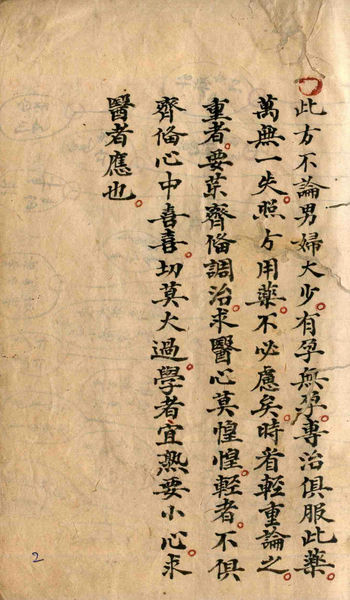 此方不論男婦大少有孕無孕專治俱服此藥
萬無一失照方用藥不必慮矣時者輕重論之
重者要藥齊偹調治求醫心莫惶惶輕者不俱
齊偹心中喜喜切莫大過學者宜熟要小心求
醫者應也
2